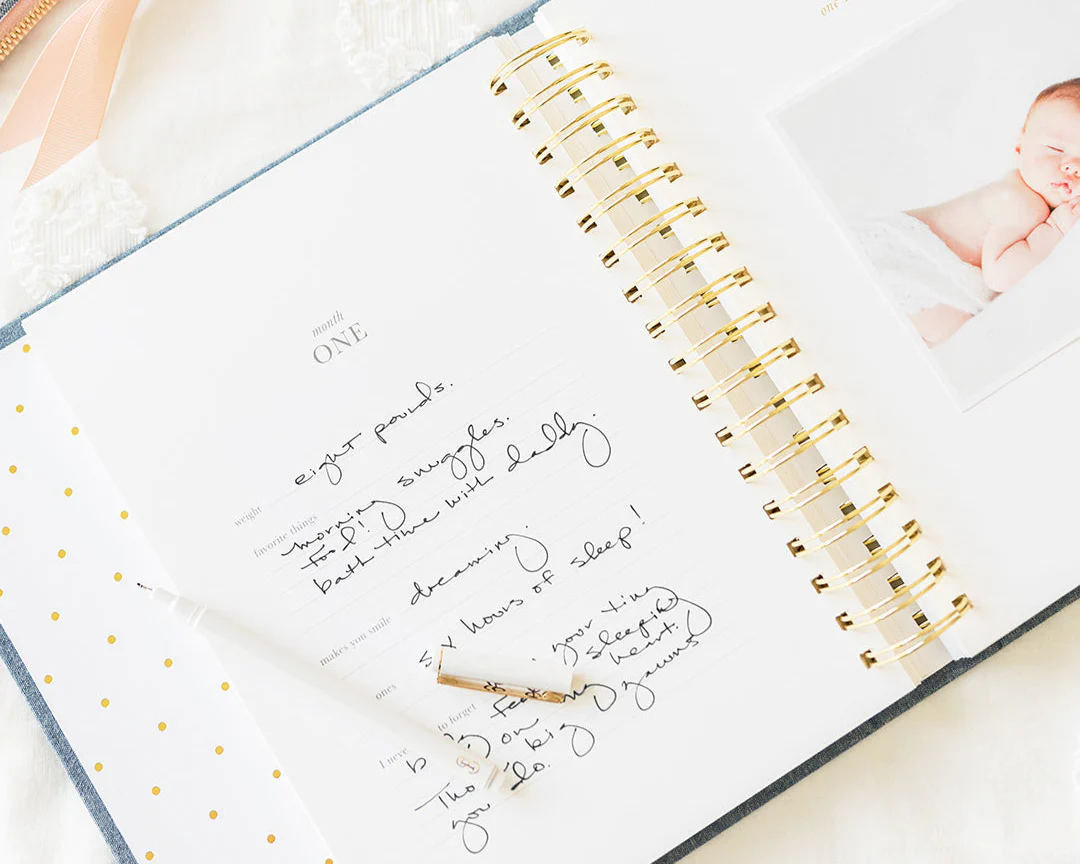 one
month
ONE
weight
eight pounds.
favorite things
morning snuggles.
food!
bath time with daddy.
makes you smile
dreaming.
ones
hours of sleep!
I never to forget
your tiny
feet sleeping
on my heart.
big yawns
you do.